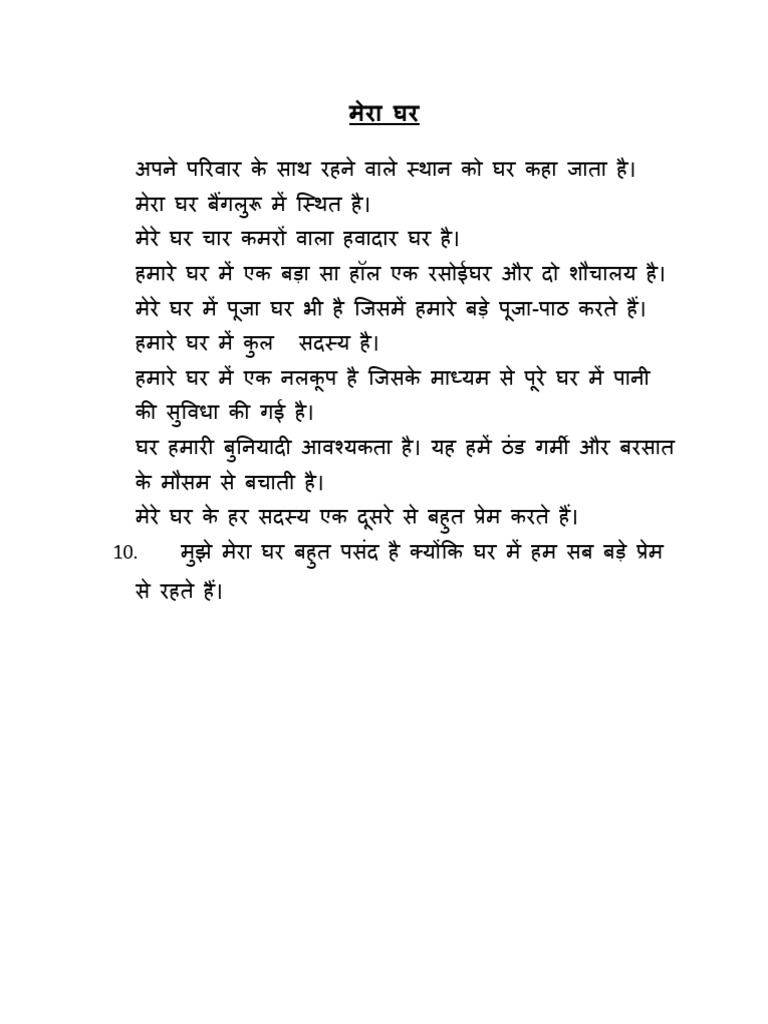 मेरा घर
अपने परिवार के साथ रहने वाले स्थान को घर कहा जाता है।
मेरा घर बैंगलुरू में स्थित है।
मेरे घर चार कमरों वाला हवादार घर है।
हमारे घर में एक बड़ा सा हॉल एक रसोईघर और दो शौचालय है।
मेरे घर में पूजा घर भी है जिसमें हमारे बड़े पूजा-पाठ करते हैं।
हमारे घर में कुल सदस्य है।
हमारे घर में एक नलकूप है जिसके माध्यम से पूरे घर में पानी
की सुविधा की गई है।
घर हमारी बुनियादी आवश्यकता है। यह हमें ठंड गर्मी और बरसात
के मौसम से बचाती है।
मेरे घर के हर सदस्य एक दूसरे से बहुत प्रेम करते हैं।
10. मुझे मेरा घर बहुत पसंद है क्योंकि घर में हम सब बड़े प्रेम
से रहते हैं।